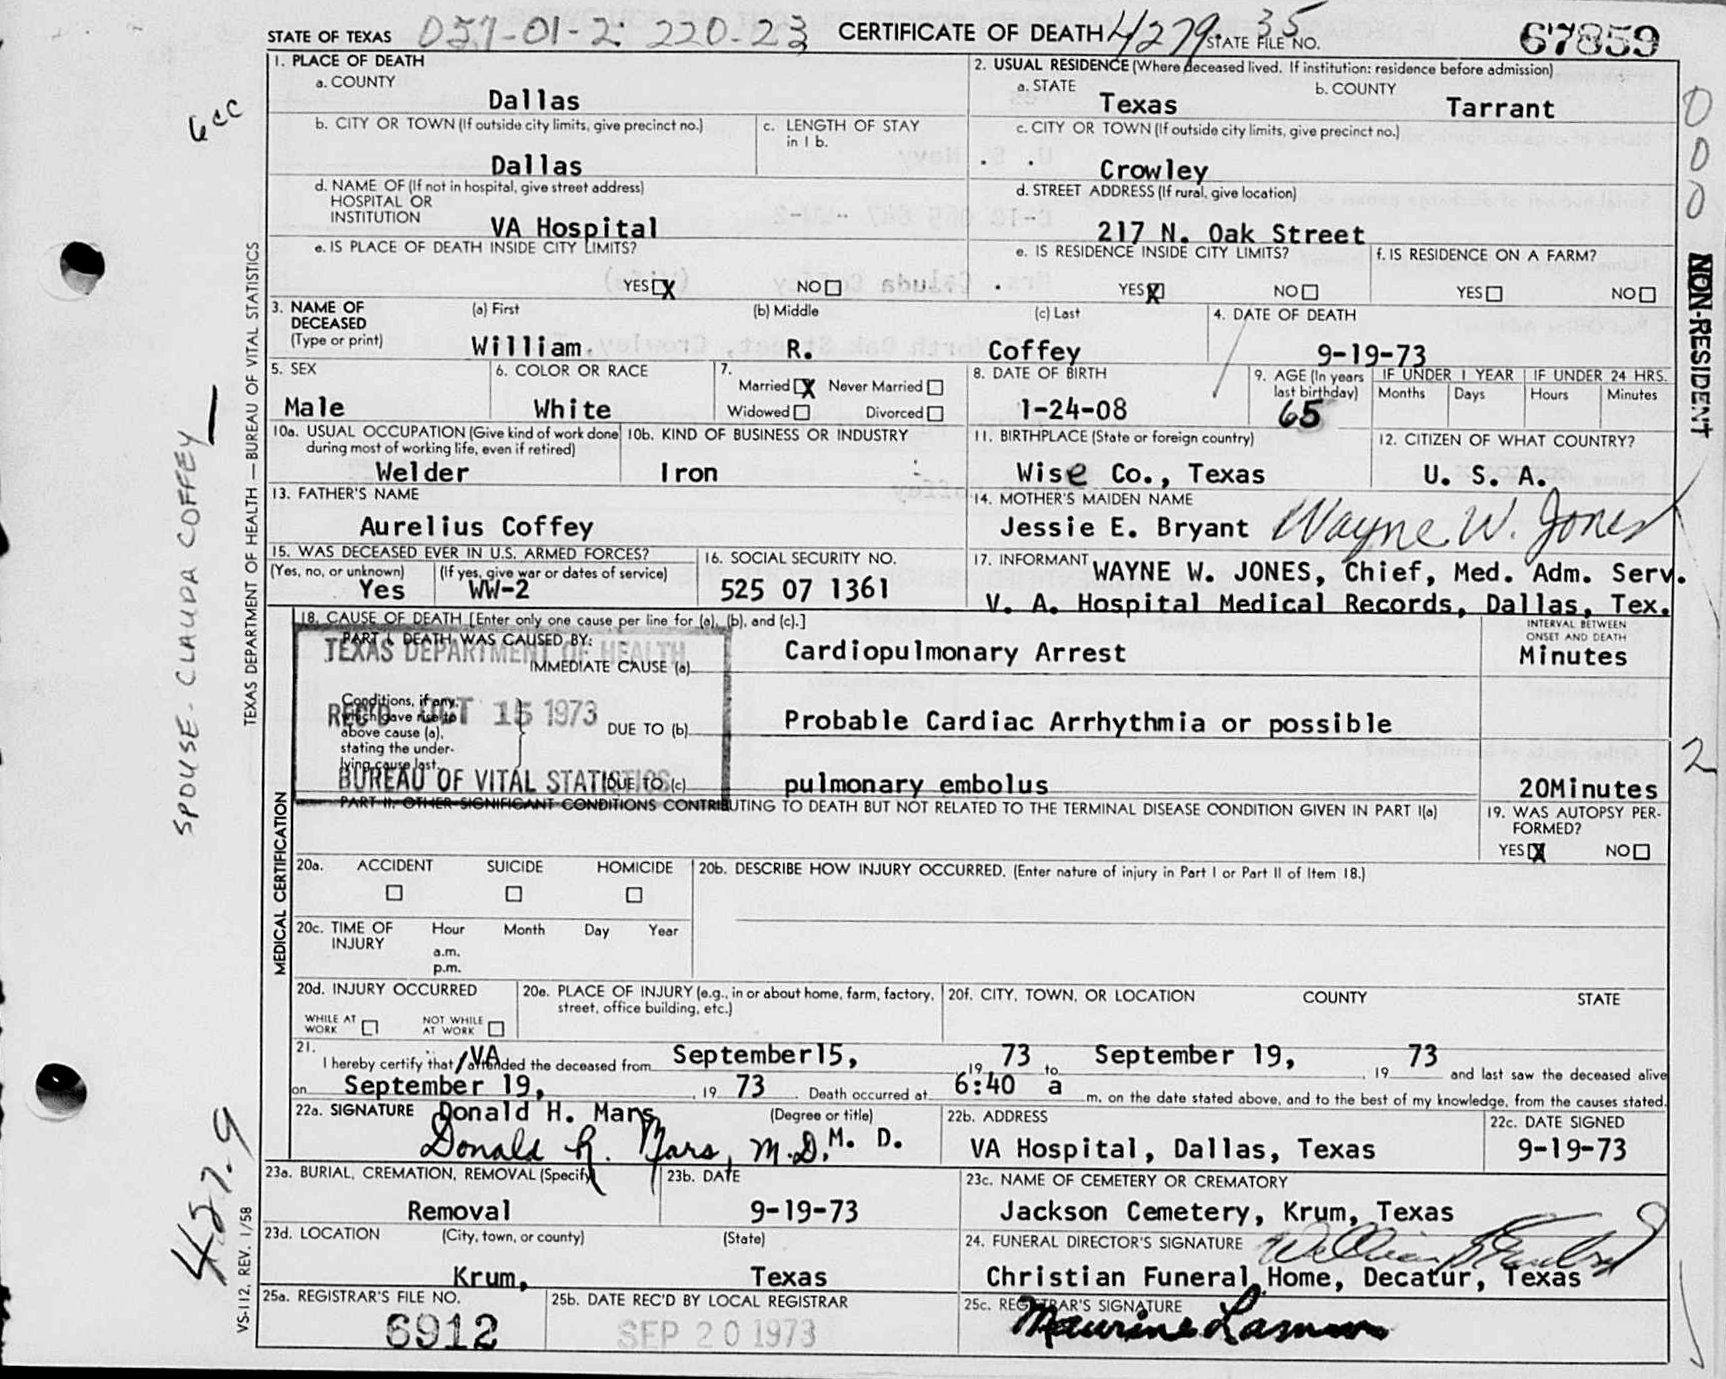 STATE OF TEXAS 057-01-2 220-23 CERTIFICATE OF DEATH 4279. 35 STATE FILE NO. 67859
1. PLACE OF DEATH
a. COUNTY
Dallas
b. CITY OR TOWN (If outside city limits, give precinct no.)
Dallas
c. LENGTH OF STAY in 1 b.
d. NAME OF (If not in hospital, give street address)
HOSPITAL OR
INSTITUTION
VA Hospital
e. IS PLACE OF DEATH INSIDE CITY LIMITS?
YES X NO
2. USUAL RESIDENCE (Where deceased lived. If institution: residence before admission)
a. STATE b. COUNTY
Texas Tarrant
c. CITY OR TOWN (If outside city limits, give precinct no.)
Crowley
d. STREET ADDRESS (If rural, give location)
217 N. Oak Street
e. IS RESIDENCE INSIDE CITY LIMITS? f. IS RESIDENCE ON A FARM?
YES X NO YES NO
3. NAME OF DECEASED (Type or print)
(a) First (b) Middle (c) Last
William R. Coffey
4. DATE OF DEATH
9-19-73
5. SEX
Male
6. COLOR OR RACE
White
7.
Married X Never Married
Widowed Divorced
8. DATE OF BIRTH
1-24-08
9. AGE (In years last birthday)
65
IF UNDER 1 YEAR IF UNDER 24 HRS.
Months Days Hours Minutes
10a. USUAL OCCUPATION (Give kind of work done during most of working life, even if retired)
Welder
10b. KIND OF BUSINESS OR INDUSTRY
Iron
11. BIRTHPLACE (State or foreign country)
Wise Co., Texas
12. CITIZEN OF WHAT COUNTRY?
U. S. A.
13. FATHER'S NAME
Aurelius Coffey
14. MOTHER'S MAIDEN NAME
Jessie E. Bryant
Wayne W. Jones
15. WAS DECEASED EVER IN U.S. ARMED FORCES?
(Yes, no, or unknown) (If yes, give war or dates of service)
Yes WW-2
16. SOCIAL SECURITY NO.
525 07 1361
17. INFORMANT WAYNE W. JONES, Chief, Med. Adm. Serv.
V. A. Hospital Medical Records, Dallas, Tex.
18. CAUSE OF DEATH [Enter only one cause per line for (a), (b), and (c).]
PART I. DEATH WAS CAUSED BY:
IMMEDIATE CAUSE (a) Cardiopulmonary Arrest
INTERVAL BETWEEN ONSET AND DEATH
Minutes
Conditions, if any, which gave rise to above cause (a), stating the underlying cause last.
DUE TO (b) Probable Cardiac Arrhythmia or possible
DUE TO (c) pulmonary embolus 20Minutes
TEXAS DEPARTMENT OF HEALTH
REC'D OCT 15 1973
BUREAU OF VITAL STATISTICS
PART II. OTHER SIGNIFICANT CONDITIONS CONTRIBUTING TO DEATH BUT NOT RELATED TO THE TERMINAL DISEASE CONDITION GIVEN IN PART I(a)
19. WAS AUTOPSY PERFORMED?
YES X NO
20a. ACCIDENT SUICIDE HOMICIDE
20b. DESCRIBE HOW INJURY OCCURRED. (Enter nature of injury in Part I or Part II of Item 18.)
20c. TIME OF INJURY Hour Month Day Year
a.m.
p.m.
20d. INJURY OCCURRED
WHILE AT WORK NOT WHILE AT WORK
20e. PLACE OF INJURY (e.g., in or about home, farm, factory, street, office building, etc.)
20f. CITY, TOWN, OR LOCATION COUNTY STATE
21.
I hereby certify that VA attended the deceased from September15, 19 73 to September 19, 19 73 and last saw the deceased alive
on September 19, 19 73. Death occurred at 6:40 a m. on the date stated above, and to the best of my knowledge, from the causes stated.
22a. SIGNATURE Donald H. Mars (Degree or title)
Donald H. Mars, M.D. M. D.
22b. ADDRESS
VA Hospital, Dallas, Texas
22c. DATE SIGNED
9-19-73
23a. BURIAL, CREMATION, REMOVAL (Specify)
Removal
23b. DATE
9-19-73
23c. NAME OF CEMETERY OR CREMATORY
Jackson Cemetery, Krum, Texas
23d. LOCATION (City, town, or county) (State)
Krum, Texas
24. FUNERAL DIRECTOR'S SIGNATURE
Christian Funeral Home, Decatur, Texas
25a. REGISTRAR'S FILE NO.
6912
25b. DATE REC'D BY LOCAL REGISTRAR
SEP 20 1973
25c. REGISTRAR'S SIGNATURE
Maurine
TEXAS DEPARTMENT OF HEALTH — BUREAU OF VITAL STATISTICS
MEDICAL CERTIFICATION
VS-112, REV. 1/58
SPOUSE - CLAUDA COFFEY
427.9
6cc
0
0
0
NON-RESIDENT
2